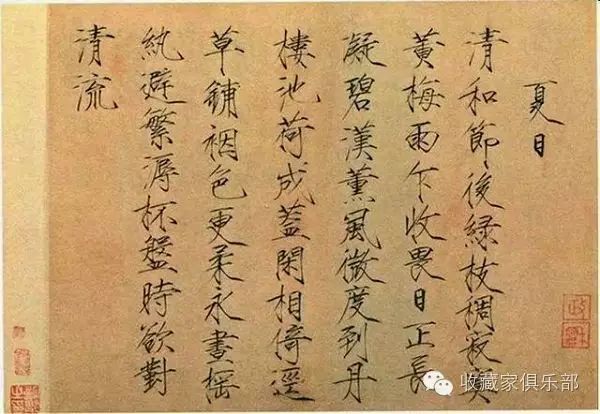 夏日
清和節後綠枝稠寂寞
黃梅雨乍收畏日正長
凝碧漢薰風微度到丹
樓池荷成蓋閑相倚逕
草鋪裀色更柔永晝搖
紈避繁溽杯盤時欲對
清流
政龢
收藏家俱乐部